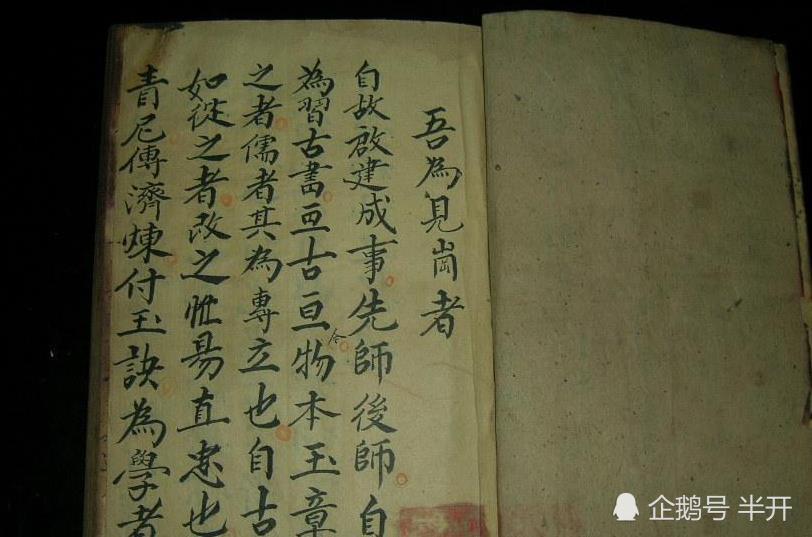 吾為見崗者
自故啟建成事先師後師自
為習古書亘古亘今物本玉章
之者儒者其為專立也自古
如從之者改之惟易直忠也
青尼傳濟煉付玉訣為學者
企鹅号 半开